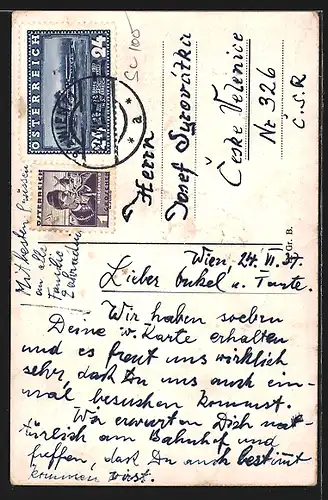 ÖSTERREICH
24
ÖSTERREICH
1
WIEN
* a *
SC 100
Herrn
Josef Syrovátka
České Velenice
Nr 326
Č.S.R
Gr. B.
Mit besten Grüssen
an alle
Familie
Wien, 24. VI. 37.
Lieber Onkel u. Tante.
Wir haben soeben
Deine w. Karte erhalten
und es freut uns wirklich
sehr, dass Du uns auch ein-
mal besuchen kommst.
Wir erwarten Dich na-
türlich am Bahnhof und
hoffen, dass Du auch bestimmt
kommen wirst.